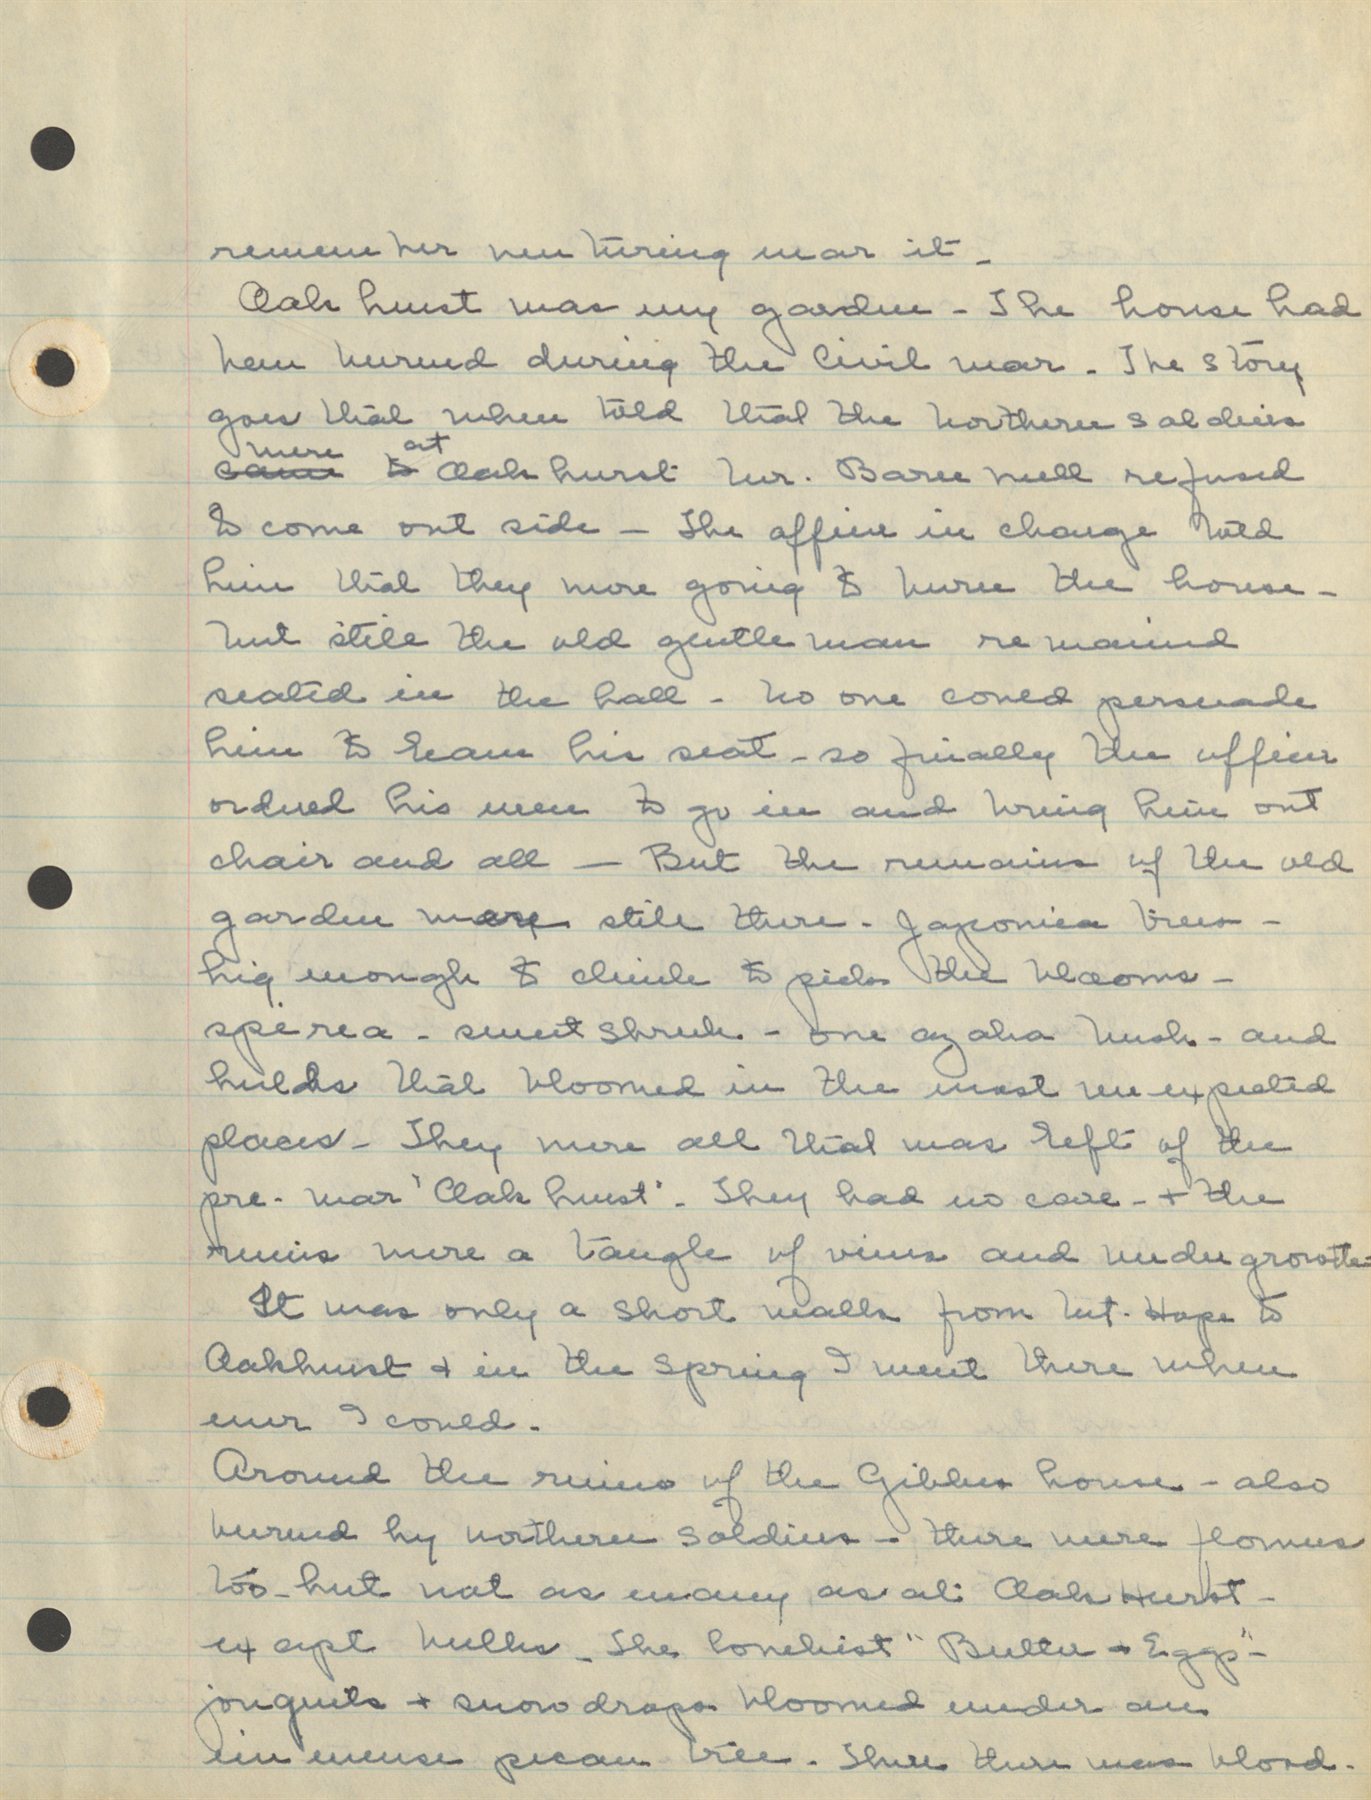 remember venturing near it -
Oakhurst was my garden - The house had
been burned during the Civil war. The story
goes that when told that the northern soldiers
~~came to~~ were at Oakhurst Mr. Barnwell refused
to come out side - The officer in charge told
him that they were going to burn the house -
but still the old gentleman remained
seated in the hall - No one could persuade
him to leave his seat - so finally the officer
ordered his men to go in and bring him out
chair and all — But the remains of the old
garden were still there - Japonica trees -
big enough to climb to pick the blooms -
spirea - sweet shrub - one azalea bush - and
bulbs that bloomed in the most un-expected
places - They were all that was left of the
pre-war 'Oakhurst'. They had no care - + the
ruins were a tangle of vines and undergrowth -
It was only a short walk from Mt. Hope to
Oakhurst + in the Spring I went there when
ever I could -
Around the ruins of the Gibbes house - also
burned by northern soldiers - there were flowers
too - but not as many as at Oak Hurst -
except bulbs - The loveliest "Butter + Eggs" -
jonquils + snowdrops bloomed under an
immense pecan tree - There there was blood -